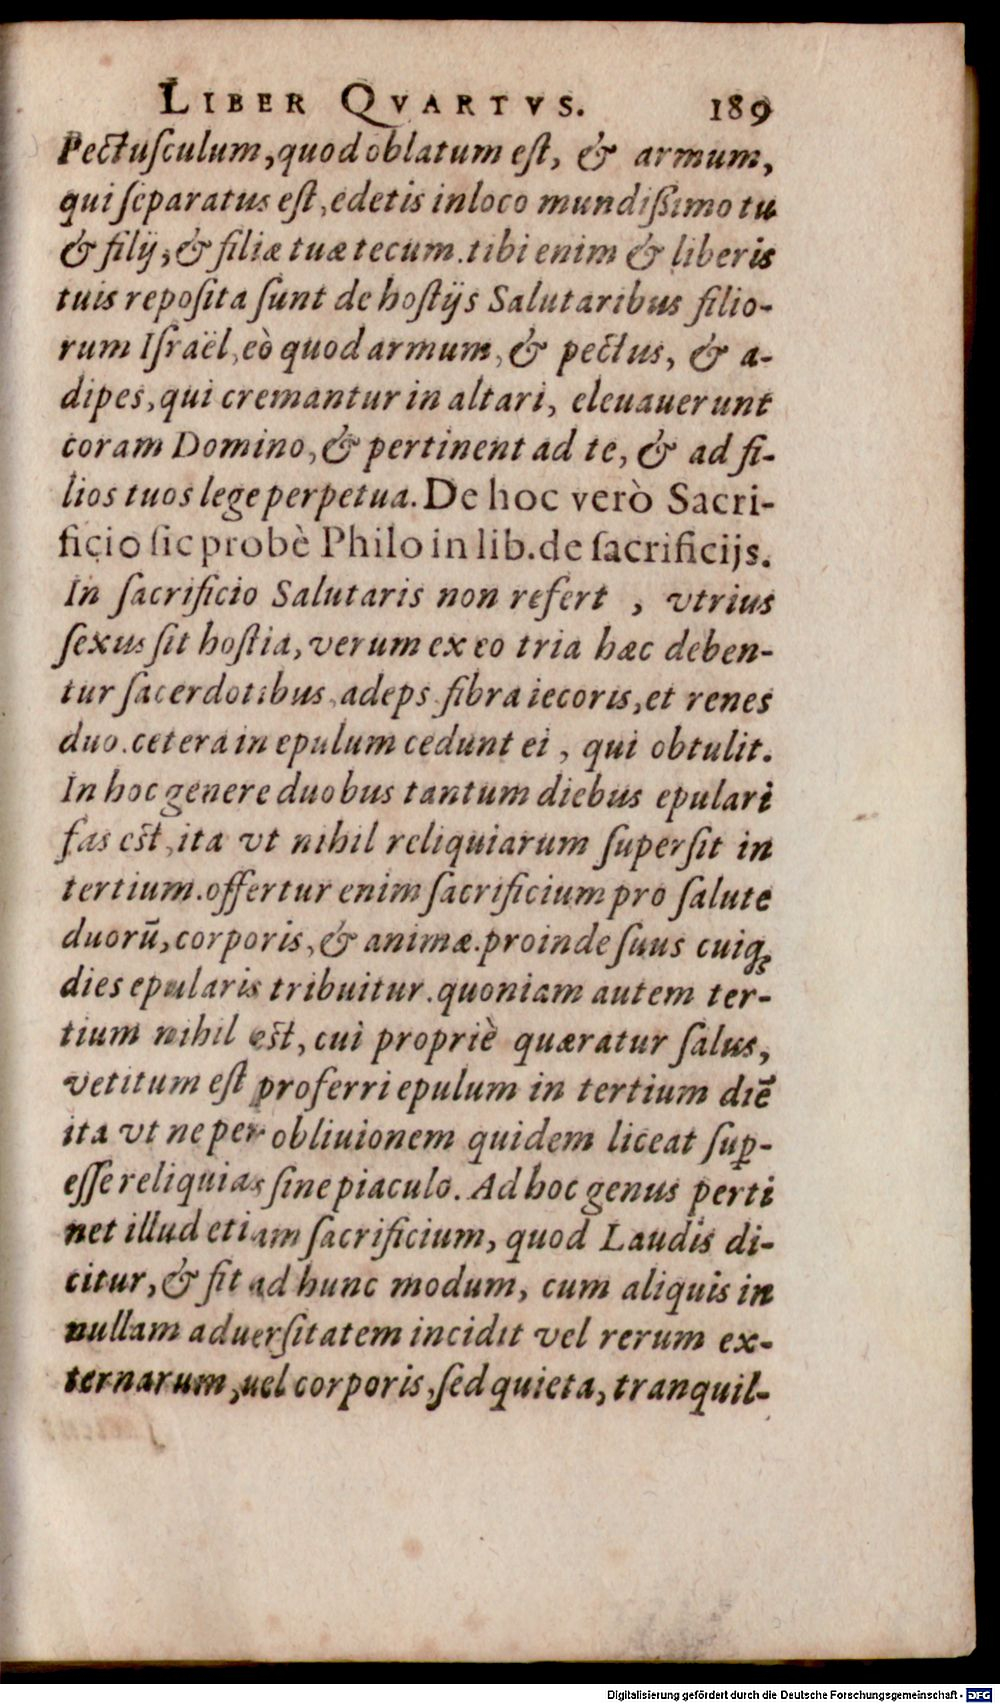 LIBER QVARTVS. 189
Pectuſculum, quod oblatum eſt, & armum,
qui ſeparatus eſt, edetis in loco mundißimo tu
& filij, & filiæ tuæ tecum. tibi enim & liberis
tuis repoſita ſunt de hoſtijs Salutaribus filio-
rum Iſraël, eò quod armum, & pectus, & a-
dipes, qui cremantur in altari, eleuauerunt
coram Domino, & pertinent ad te, & ad fi-
lios tuos lege perpetua. De hoc verò Sacri-
ficio ſic probè Philo in lib. de ſacrificijs.
In ſacrificio Salutaris non refert , vtrius
ſexus ſit hoſtia, verum ex eo tria hæc deben-
tur ſacerdotibus, adeps fibra iecoris, et renes
duo. cetera in epulum cedunt ei , qui obtulit.
In hoc genere duobus tantum diebus epulari
fas eſt, ita vt nihil reliquiarum ſuperſit in
tertium. offertur enim ſacrificium pro ſalute
duorū, corporis, & animæ. proinde ſuus cuiq́;
dies epularis tribuitur. quoniam autem ter-
tium nihil eſt, cui propriè quæratur ſalus,
vetitum eſt proferri epulum in tertium diē
ita vt ne per obliuionem quidem liceat ſuꝑ-
eſſe reliquias ſine piaculo. Ad hoc genus perti
net illud etiam ſacrificium, quod Laudis di-
citur, & fit ad hunc modum, cum aliquis in
nullam aduerſitatem incidit vel rerum ex-
ternarum, uel corporis, ſed quieta, tranquil-
Digitalisierung gefördert durch die Deutsche Forschungsgemeinschaft - DFG